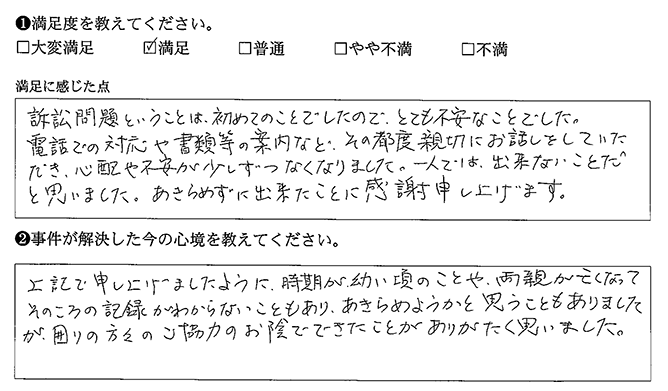 ❶満足度を教えてください。
□大変満足 ☑満足 □普通 □やや不満 □不満
満足に感じた点
訴訟問題ということは、初めてのことでしたので、とても不安なことでした。
電話での対応や書類等の案内など、その都度親切にお話しをしていた
だき、心配や不安が少しずつなくなりました。一人では、出来ないことだ
と思いました。あきらめずに出来たことに感謝申し上げます。
❷事件が解決した今の心境を教えてください。
上記で申し上げましたように、時期が幼い頃のことや、両親が亡くなって
そのころの記録がわからないこともあり、あきらめようかと思うこともありました
が、困りの方々のご協力のお陰でできたことがありがたく思いました。